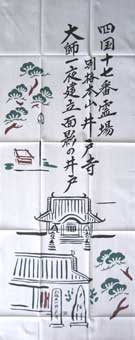 四国十七番霊場
別格本山井戸寺
大師一夜建立面影の井戸